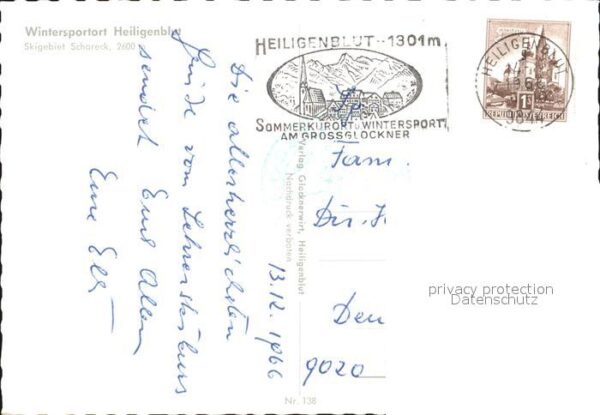 Wintersportort Heiligenblut
Skigebiet Schareck, 2600
HEILIGENBLUT -- 1301 m
SOMMERKURORT U. WINTERSPORT
AM GROSSGLOCKNER
HEILIGENBLUT
REPUBLIK ÖSTERREICH
13.12.1966
Die allerherzlichsten
Grüße vom Lehrerskikurs
sendet Euch Allen
Eure Elli
Verlag Glocknerwirt, Heiligenblut
Nachdruck verboten
Fam.
Dir.
9020
Nr. 138
privacy protection
Datenschutz